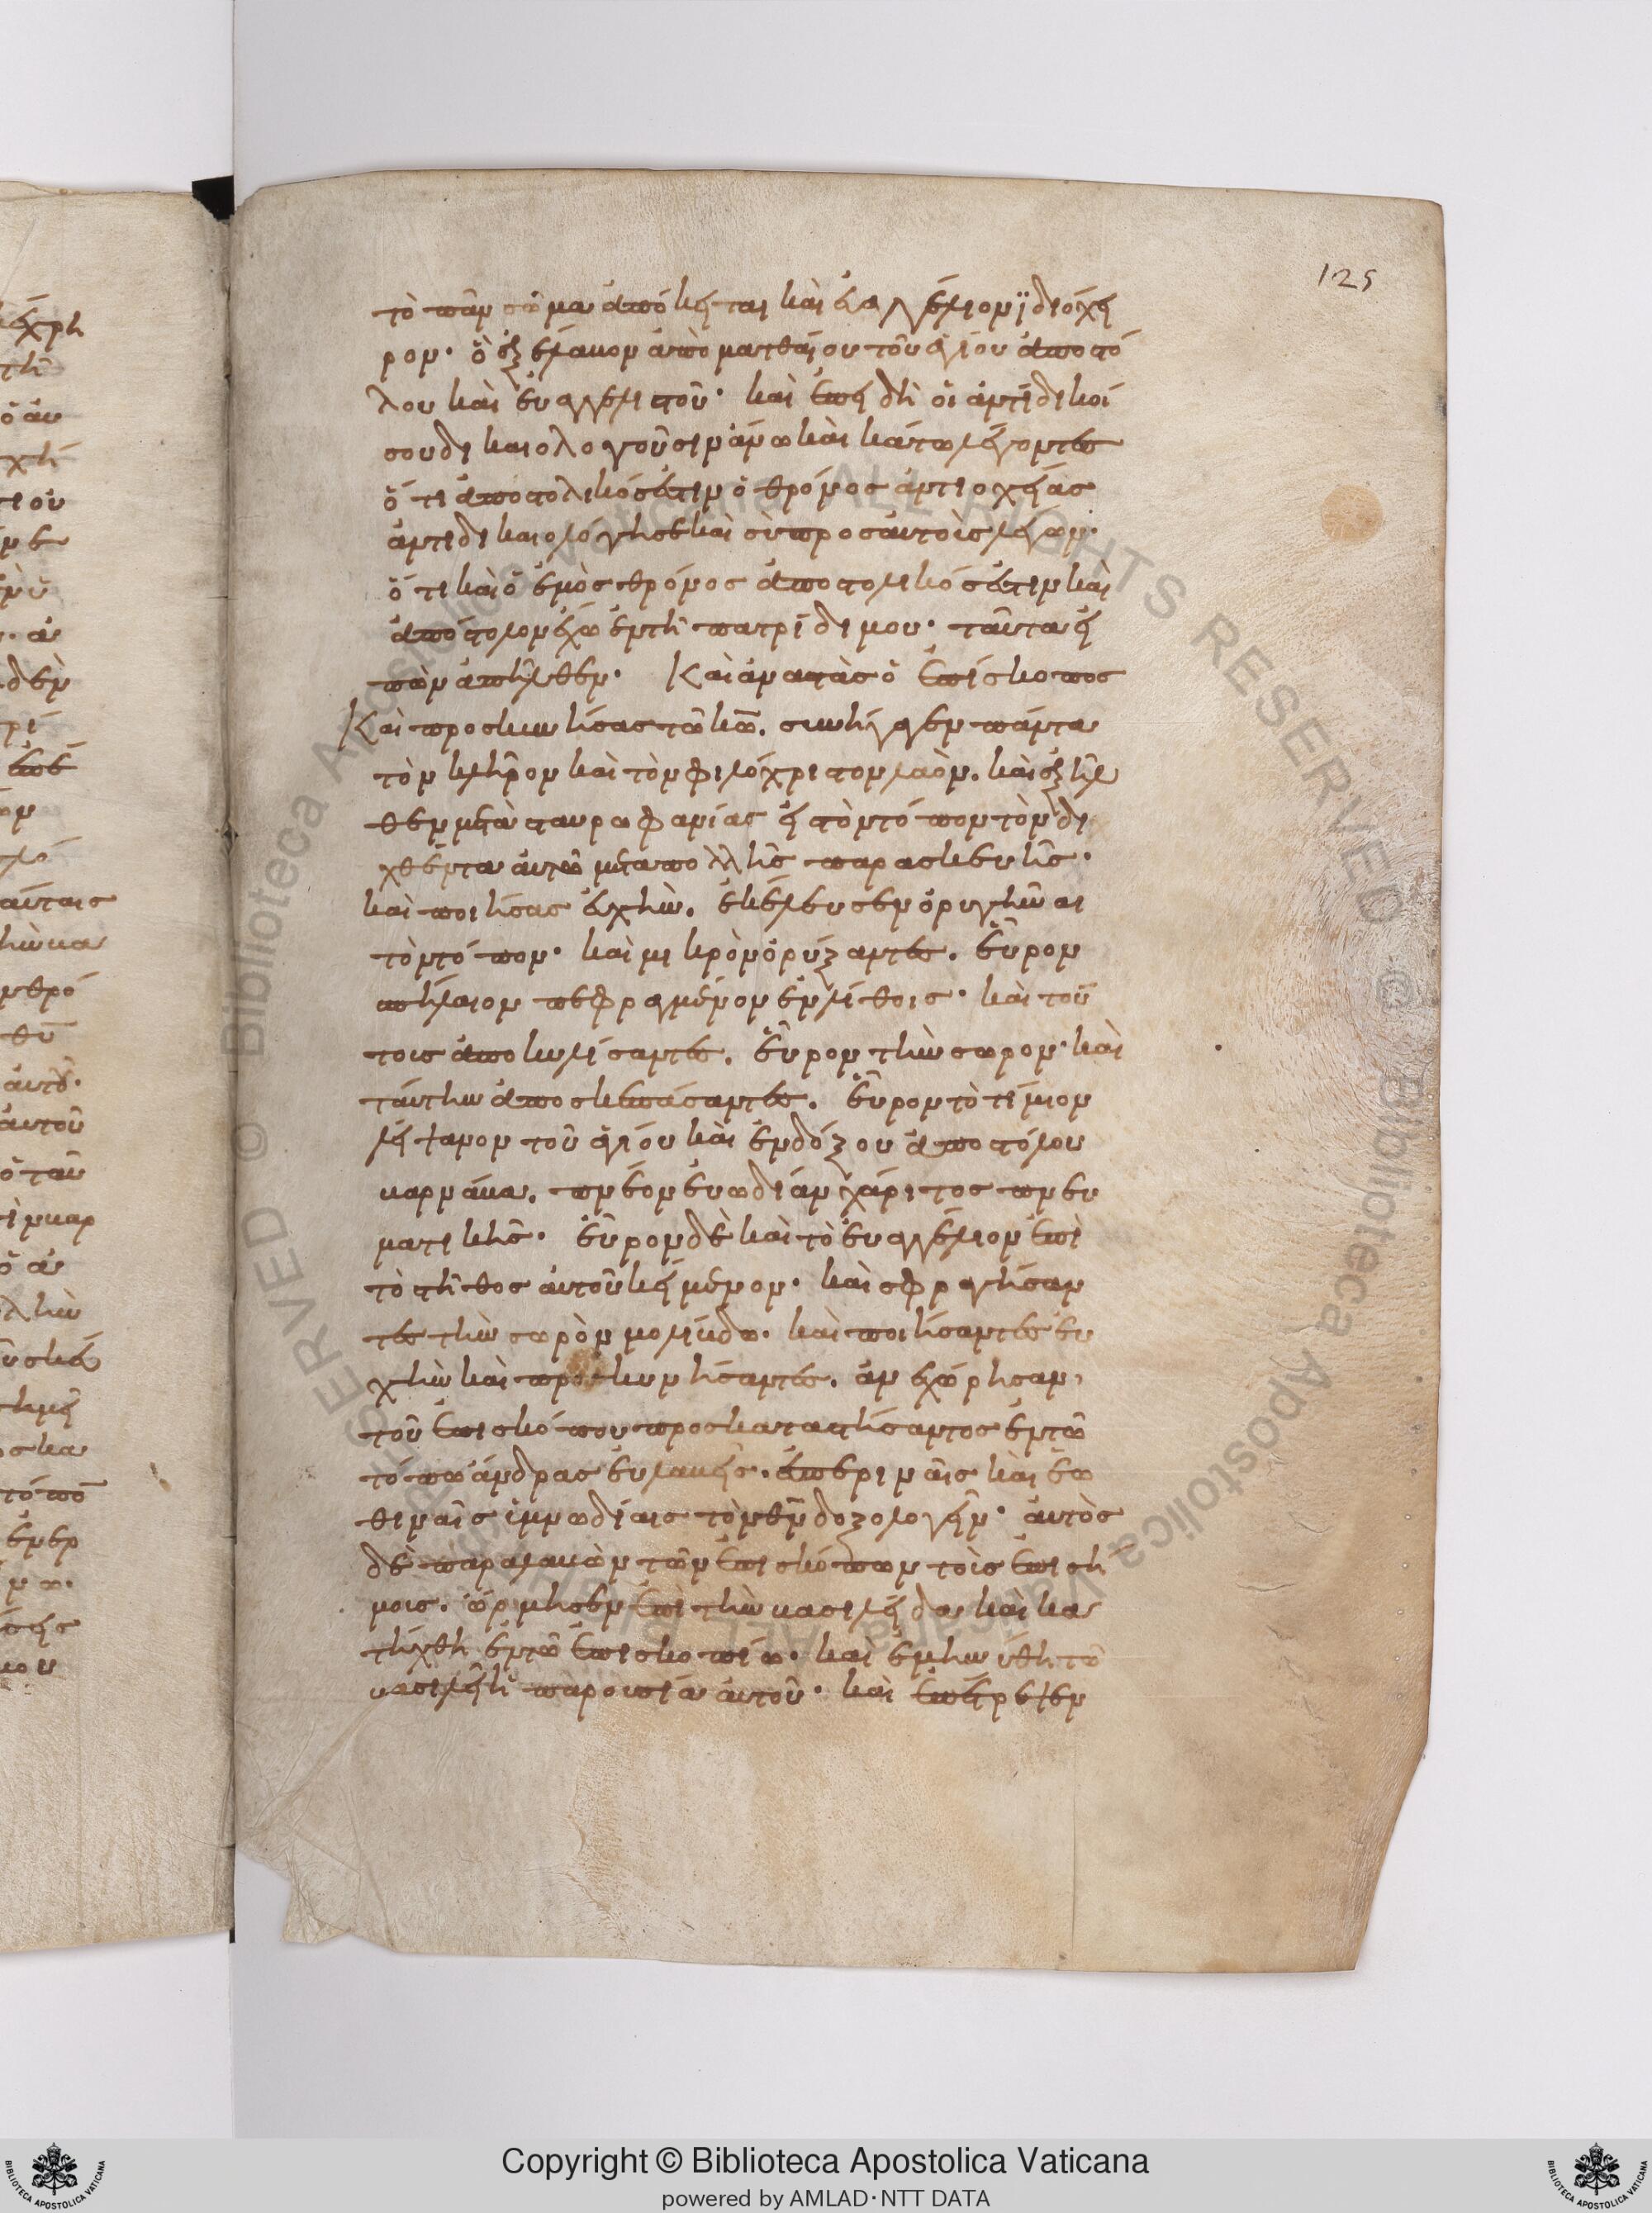 125
τὸ πᾶν σῶμα ἀπόκειται καὶ εὐαγγέλιον ϊδιόχει
ρον· ὃ ἐξέλαβον ἀπὸ ματθαίου τοῦ ἁγίου ἀποστό
λου καὶ εὐαγγελιστοῦ· καὶ ἐπειδὴ οἱ ἀντίδικοί
σου δικαιολογοῦσιν ἄνω καὶ κάτω λέγοντες
ὅτι ἀποστολικός ἐστιν ὁ θρόνος ἀντιοχείας
ἀντιδικαιολόγησε καὶ σὺ προς αὐτοὺς λέγων·
ὅτι καὶ ὁ ἐμὸς θρόνος ἀποστολικός ἐστιν καὶ
ἀπόστολον ἔχω ἐν τῆ πατρίδι μου· ταῦτα εἰ
πὼν ἀπῆλθεν· Καὶ ἀναστὰς ὁ ἐπίσκοπος
Καὶ προσκυνήσας τῶ κω̅. συνήγαγεν πάντα
τὸν κλῆρον καὶ τὸν φιλόχριστον λαὸν. καὶ ἐξῆλ
θεν μετὰ σταυροφανίας εἰς τὸν τόπον τὸν δει
χθέντα αὐτῶ μετα πολλῆς παρασκευῆς·
καὶ ποιήσας εὐχὴν. ἐκέλευσεν ὀρυγῆναι
τὸν τόπον· καὶ μικρὸν ὀρύξαντες. εὗρον
σπήλαιον πεφραγμένον ἐν λίθοις· καὶ τοῦ
τοις ἀποκυλίσαντες. εὗρον τὴν σωρον· καὶ
ταύτην ἀποσκεπάσαντες. εὗρον τὸ τίμιον
λείψανον τοῦ ἁγίου καὶ ἐνδόξου ἀποστόλου
βαρνάβα. πνέον εὐωδίαν χάριτος πνευ
ματικῆς· εὗρον δὲ καὶ τὸ εὐαγγέλιον ἐπὶ
τὸ στῆθος αὐτοῦ κείμενον· καὶ σφραγήσαν
τες τὴν σωρὸν μολύβδω· καὶ ποιήσαντες εὐ
χὴν καὶ προσκυνήσαντες. ἀνεχώρησαν,
τοῦ ἐπισκόπου προσκαταστήσαντος ἐν τῶ
τόπω ἄνδρας εὐλαβεῖς. ἑσπεριναῖς καὶ ἑω
θιναῖς ὑμνωδίαις τὸν θν̅ δοξολογεῖν· αὐτὸς
δὲ παραλαβὼν τῶν ἐπισκόπων τοῖς ἐπισή
μοις. ὥρμησεν ἐπὶ τὴν βασιλείδα καὶ κα
τήχθη ἐν τῶ ἐπισκοπίω· καὶ ἐμηνύθη τῶ
βασιλεῖ ἡ παρουσία αὐτοῦ· καὶ ἐπέτρεψεν
Copyright © Biblioteca Apostolica Vaticana
powered by AMLAD·NTT DATA